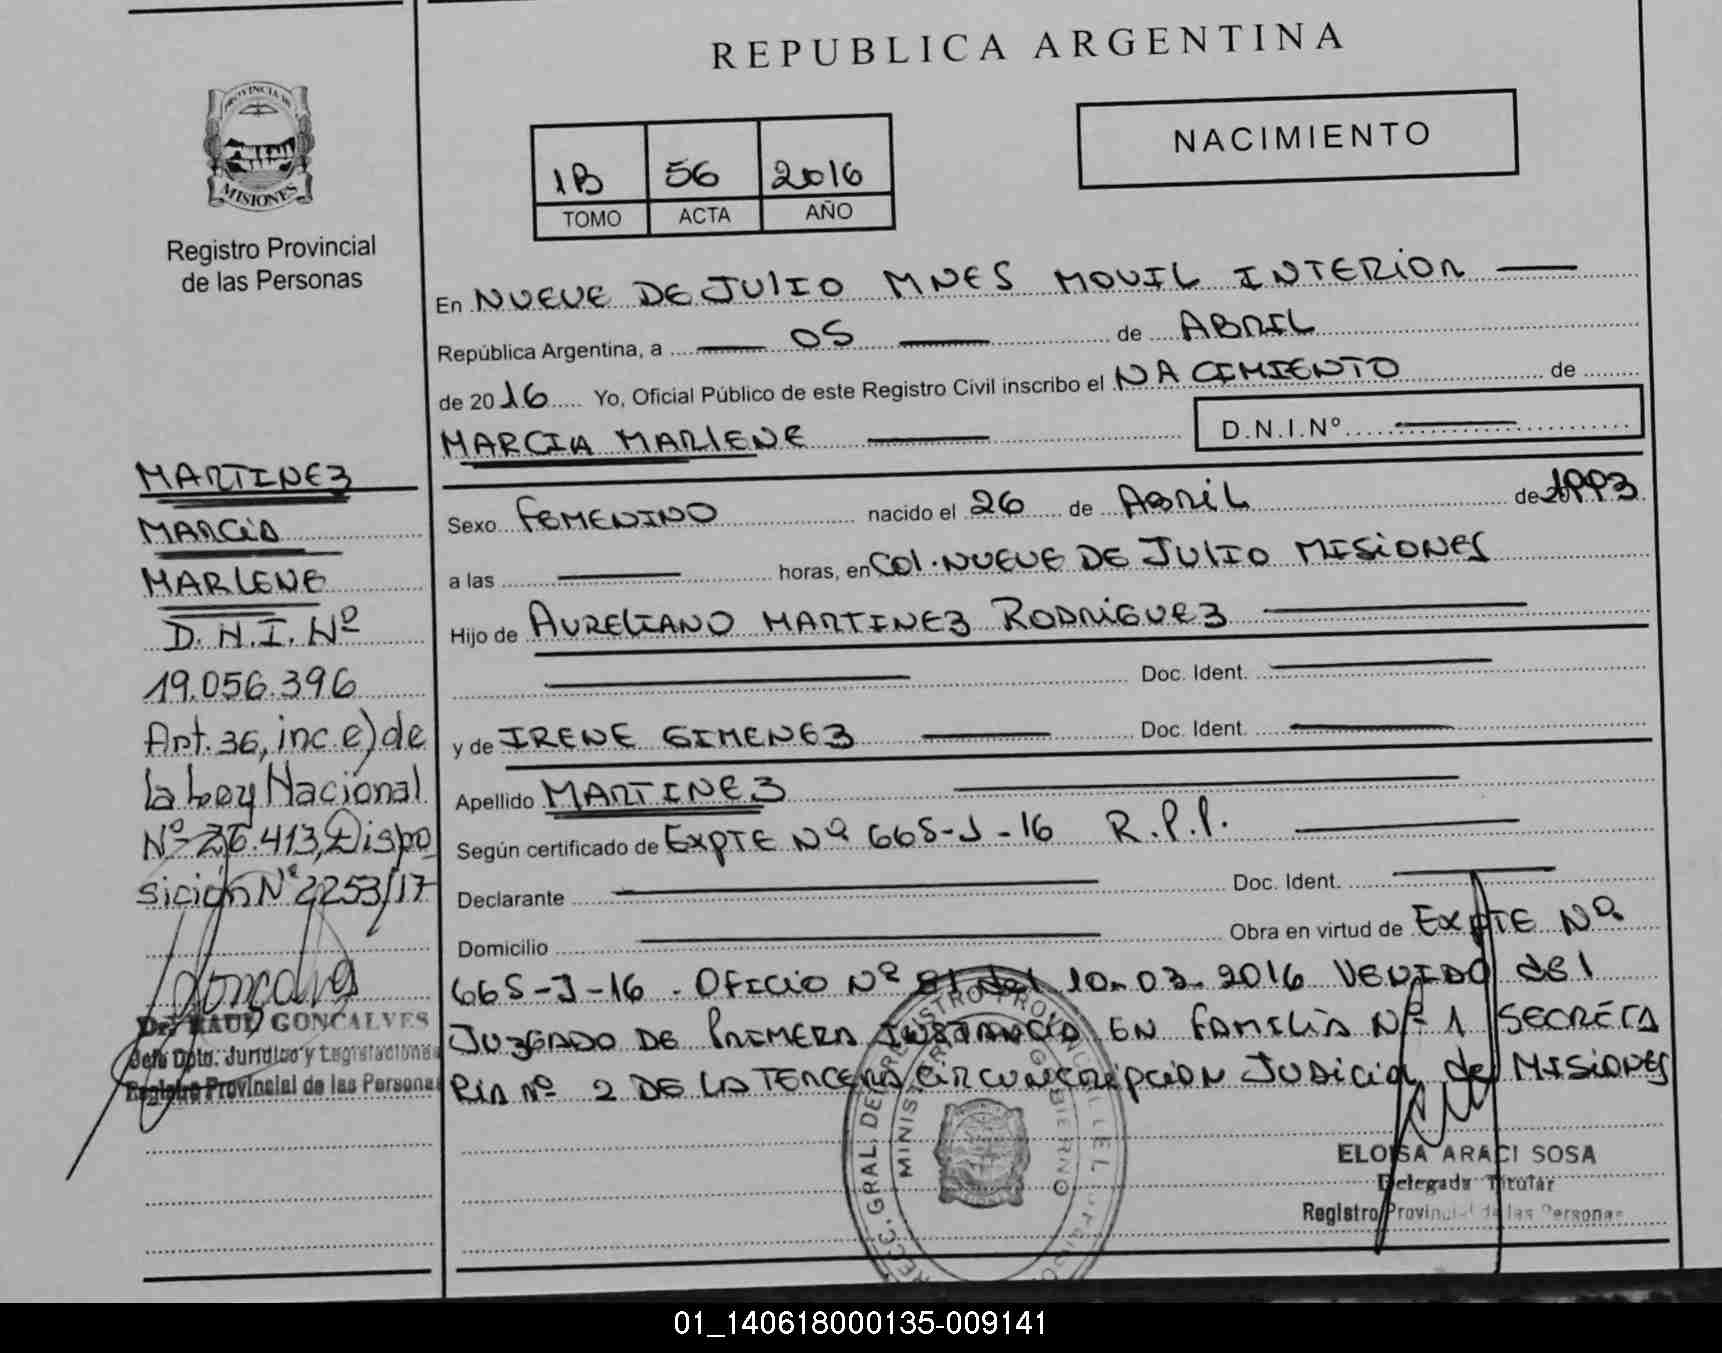 REPUBLICA ARGENTINA
NACIMIENTO
1B 56 2016
TOMO ACTA AÑO
PROVINCIA DE
MISIONES
Registro Provincial
de las Personas
En NUEVE DE JULIO MNES MOVIL INTERIOR
República Argentina, a 05 de ABRIL
de 2016 Yo, Oficial Público de este Registro Civil inscribo el NACIMIENTO de
MARCIA MARLENE D.N.I.Nº
Sexo FEMENINO nacido el 26 de ABRIL de 1993
a las horas, en COL. NUEVE DE JULIO MISIONES
Hijo de AURELIANO MARTINEZ RODRIGUEZ
Doc. Ident.
y de IRENE GIMENEZ Doc. Ident.
Apellido MARTINEZ
Según certificado de EXPTE Nº 665-J-16 R.P.P.
Declarante Doc. Ident.
Domicilio Obra en virtud de EXPTE Nº
665-J-16. OFICIO Nº 81 del 10.03.2016 VENIDO del
JUZGADO DE PRIMERA INSTANCIA EN FAMILIA Nº 1 SECRETA
RIA Nº 2 DE LA TERCERA CIRCUNSCRIPCION JUDICIAL de MISIONES
ELOISA ARACI SOSA
Delegada Titular
Registro Provincial de las Personas
MARTINEZ
MARCIA
MARLENE
D.N.I. Nº
19.056.396
Art. 36, inc. e) de
la Ley Nacional
Nº 26.413, Dispo
sición Nº 2253/17
Dr. RAUL GONCALVES
Jefe Dpto. Jurídico y Legislacione
Registro Provincial de las Persona
MINISTERIO GOBIERNO
01_140618000135-009141